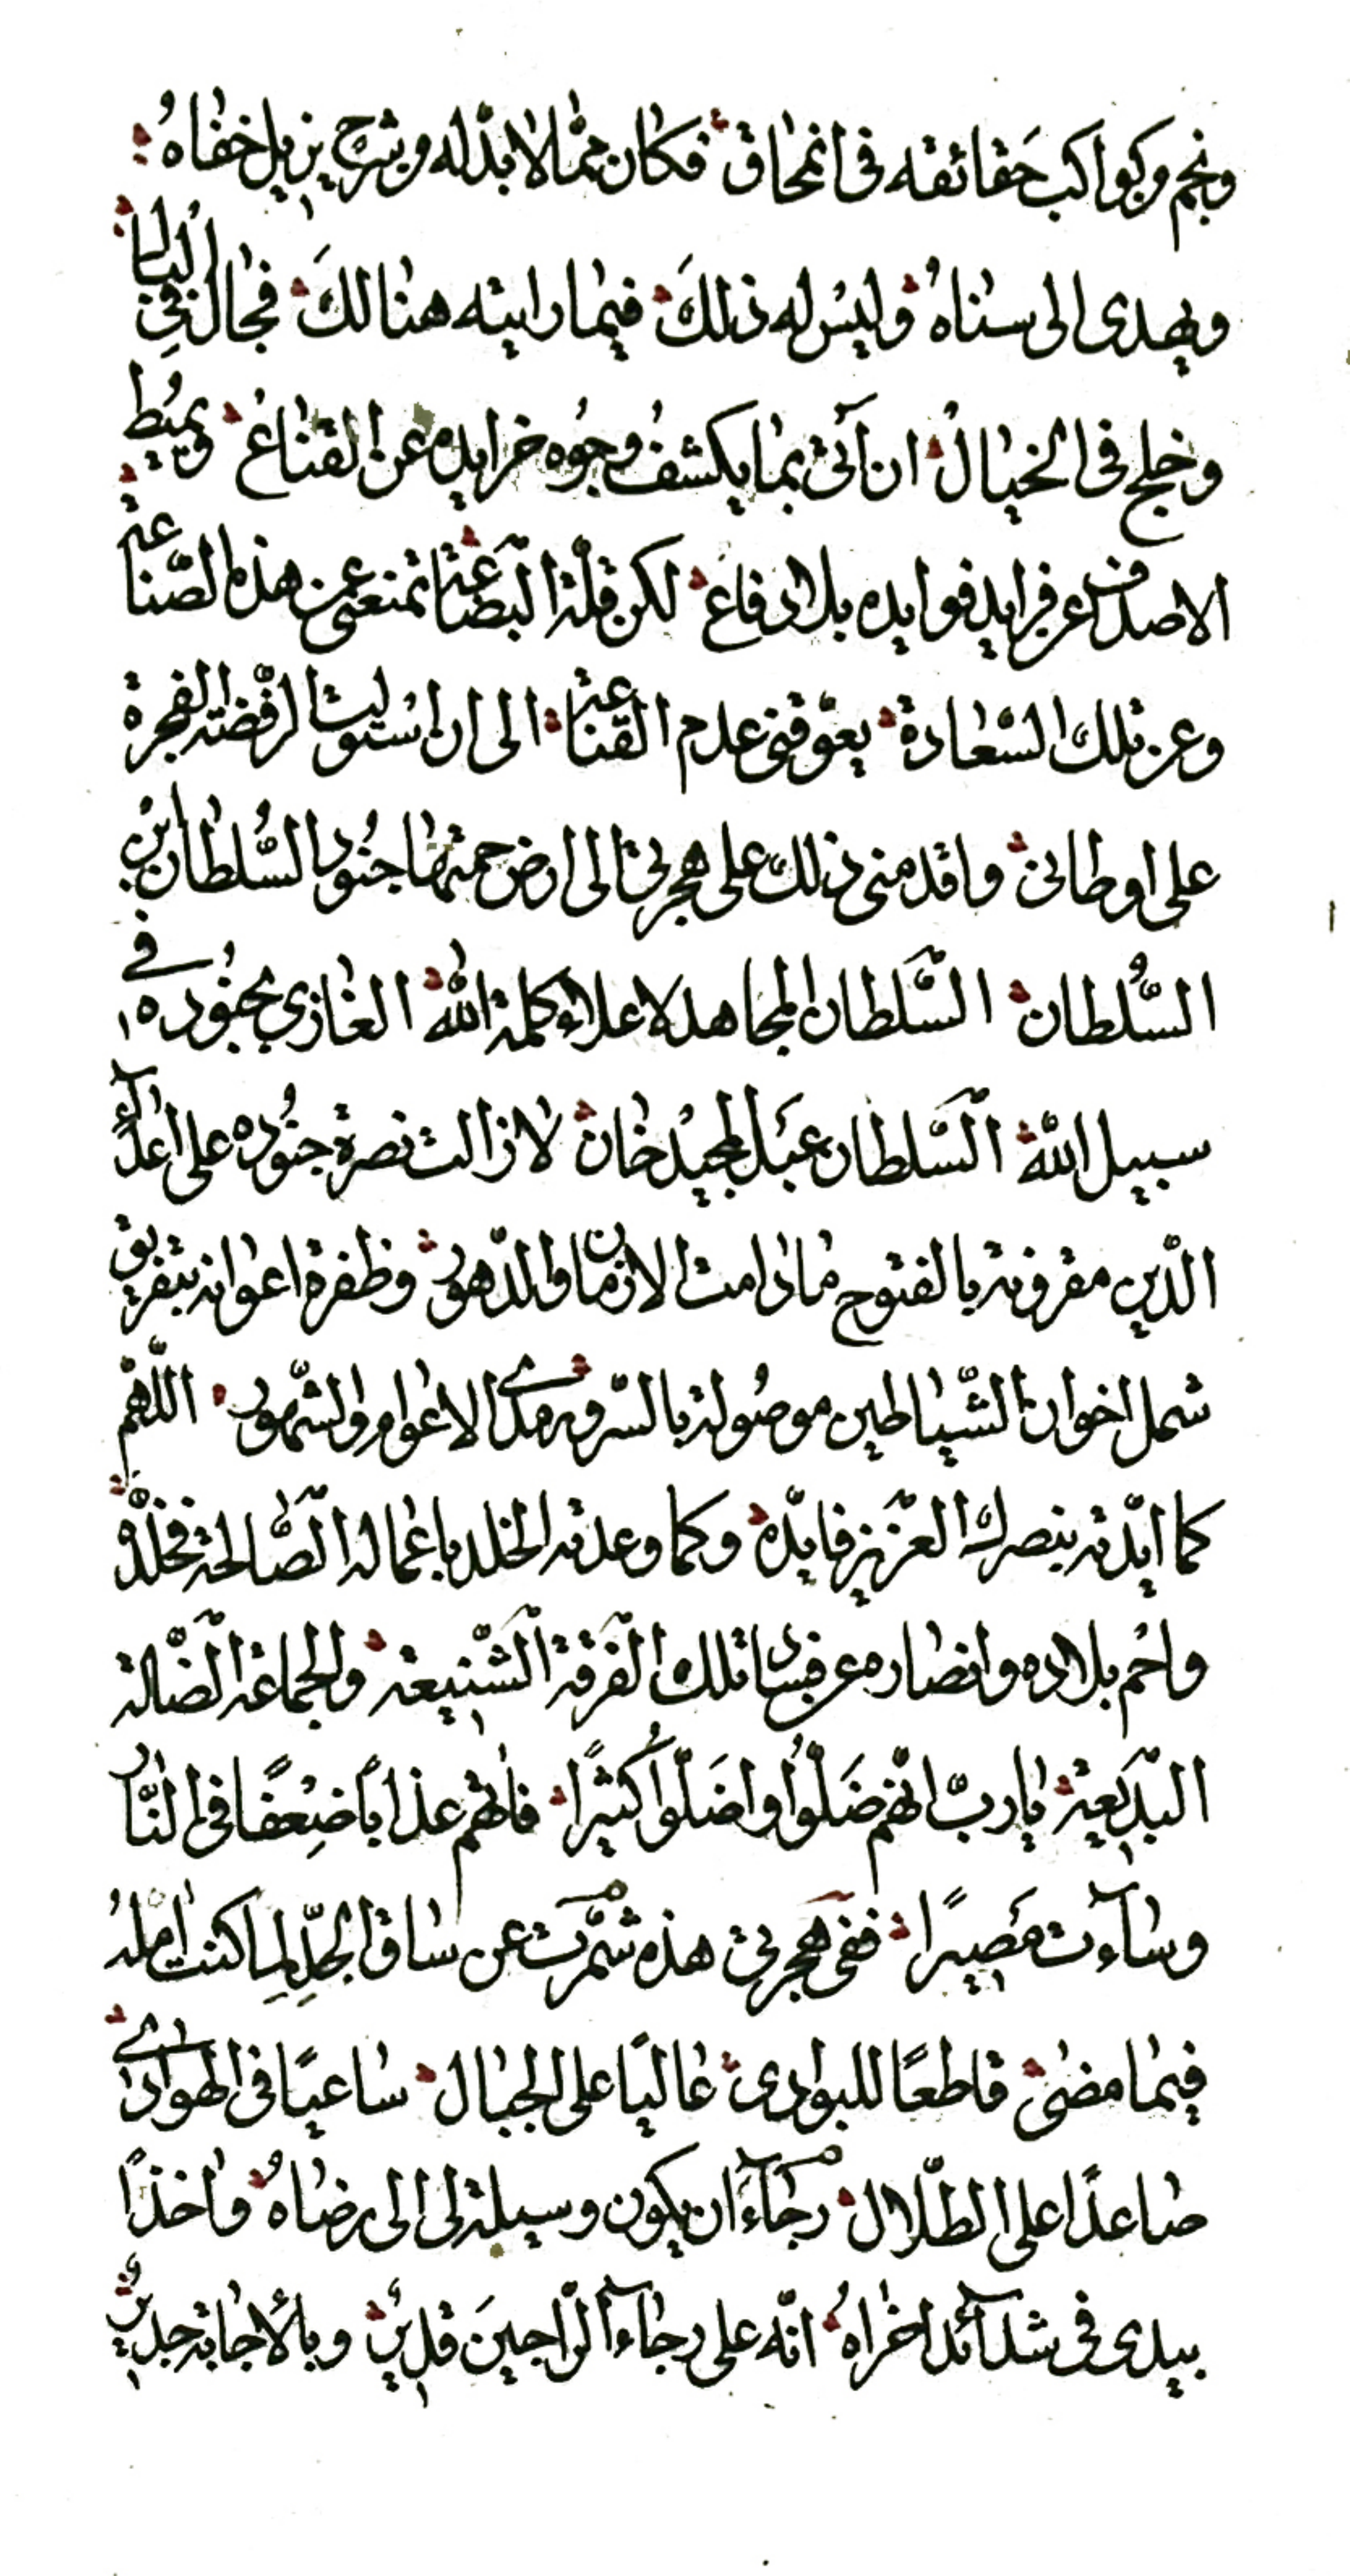 ونجم وكواكب حَقائقه فى انمحاق فكان ممّا لا بدّ له من شرح يزيل خفاهُ
ويهدى الى سناهُ وليس له ذلكَ فيما رايته هنالكَ فجال فِى البال
وخلج فى الخيال ان آتى بما يكشفُ وجُوه خرايده عن القناع ويميُط
الاصداف عن فرايد فوايده بلا دفاع لكن قلّة البَضاعة تمنعنى عن هذه الصّناعة
وعن تلك السّعادة يعوّقنى عدم القناعة الى ان استولت الرفضة الفجرة
على اوطانى واقدمنى ذلك على هجرتى الى ارض حمتها جنُود السُّلطان بن
السُّلطان السَّلطان المجاهد لاعلاء كلمة اللّه الغازي بجنُوده فى
سبيل اللّه السَّلطان عبَد المجيد خان لا زالت نصرة جنُوده على اعدآء
الدّين مقرونة بالفتوح ما دامت الازمان والدّهور وظفرة اعوانه بتفريق
شمل اخوان الشّياطين موصُولة بالسّرور مدى الاعوام والشّهور اللّهمّ
كما ايّدته بنصرك العَزيز فايّده وكما وعدته الخلد باعماله الصَّالحة فخلّده
واحُم بلاده وانصاره عن فساد تلك الفَرقة الشَّنيعة والجماعة الضَّالة
البَدِيَعة يا ربّ انّهم ضَلّوُا واضَلّوُا كثيرًا فاتهم عذابًا ضِعْفًا فى النّار
وساءَت مَصيرًا ففى هجرتى هذه شمّرت عن ساق الجدِّ لِما كنت امّلهُ
فيما مضى قاطعًا للبوادى عاليًا على الجبال ساعيًا فى الهوادى
صاعدًا على الطّلال رجآءَ ان يكون وسيلة لى الى رضاهُ واخذًا
بيدى فى شدآئد اخراهُ انّه على رجآء الرّاجينَ قديرٌ وبالاجابة جديرٌ